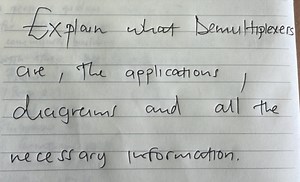 Explain what Demultiplexers
are, The applications,
diagrams and all the
necessary information.